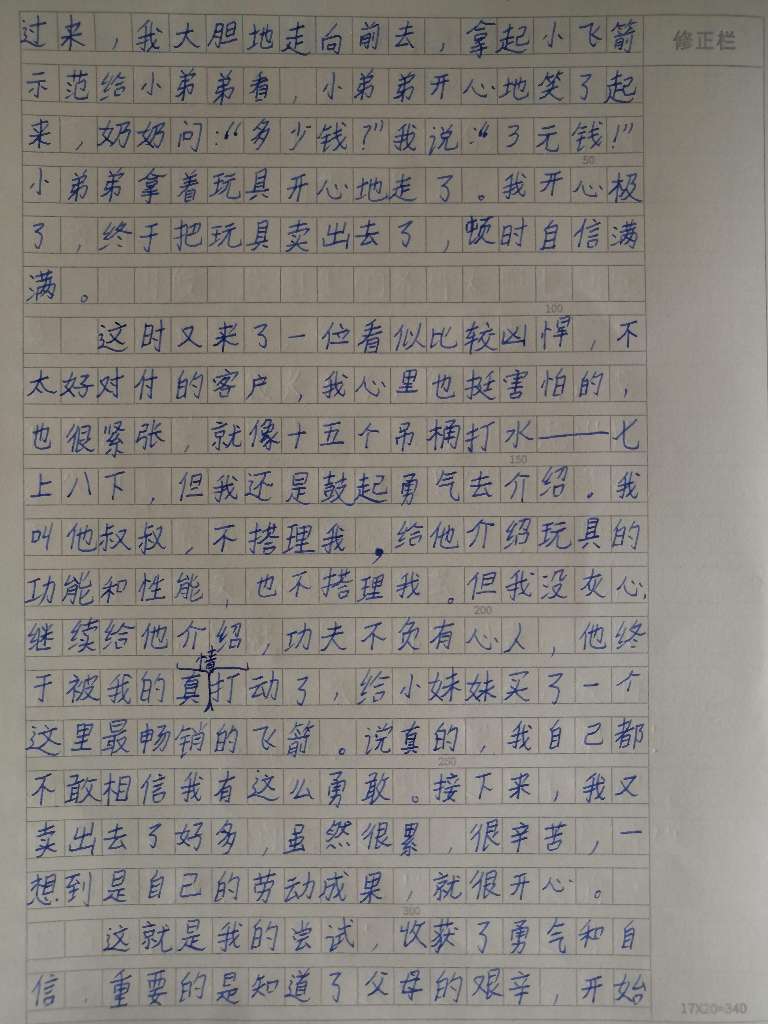 过来，我大胆地走向前去，拿起小飞箭
修正栏
示范给小弟弟看，小弟弟开心地笑了起
来，奶奶问：“多少钱？”我说：“3元钱！”
50
小弟弟拿着玩具开心地走了。我开心极
了，终于把玩具卖出去了，顿时自信满
满。
100
这时又来了一位看似比较凶悍，不
太好对付的客户，我心里也挺害怕的，
也很紧张，就像十五个吊桶打水——七
150
上八下，但我还是鼓起勇气去介绍。我
叫他叔叔，不搭理我，给他介绍玩具的
功能和性能，也不搭理我。但我没灰心，
200
继续给他介绍，功夫不负有心人，他终
于被我的真情打动了，给小妹妹买了一个
这里最畅销的飞箭。说真的，我自己都
250
不敢相信我有这么勇敢。接下来，我又
卖出去了好多，虽然很累，很辛苦，一
想到是自己的劳动成果，就很开心。
300
这就是我的尝试，收获了勇气和自
信．重要的是知道了父母的艰辛，开始
17X20=340